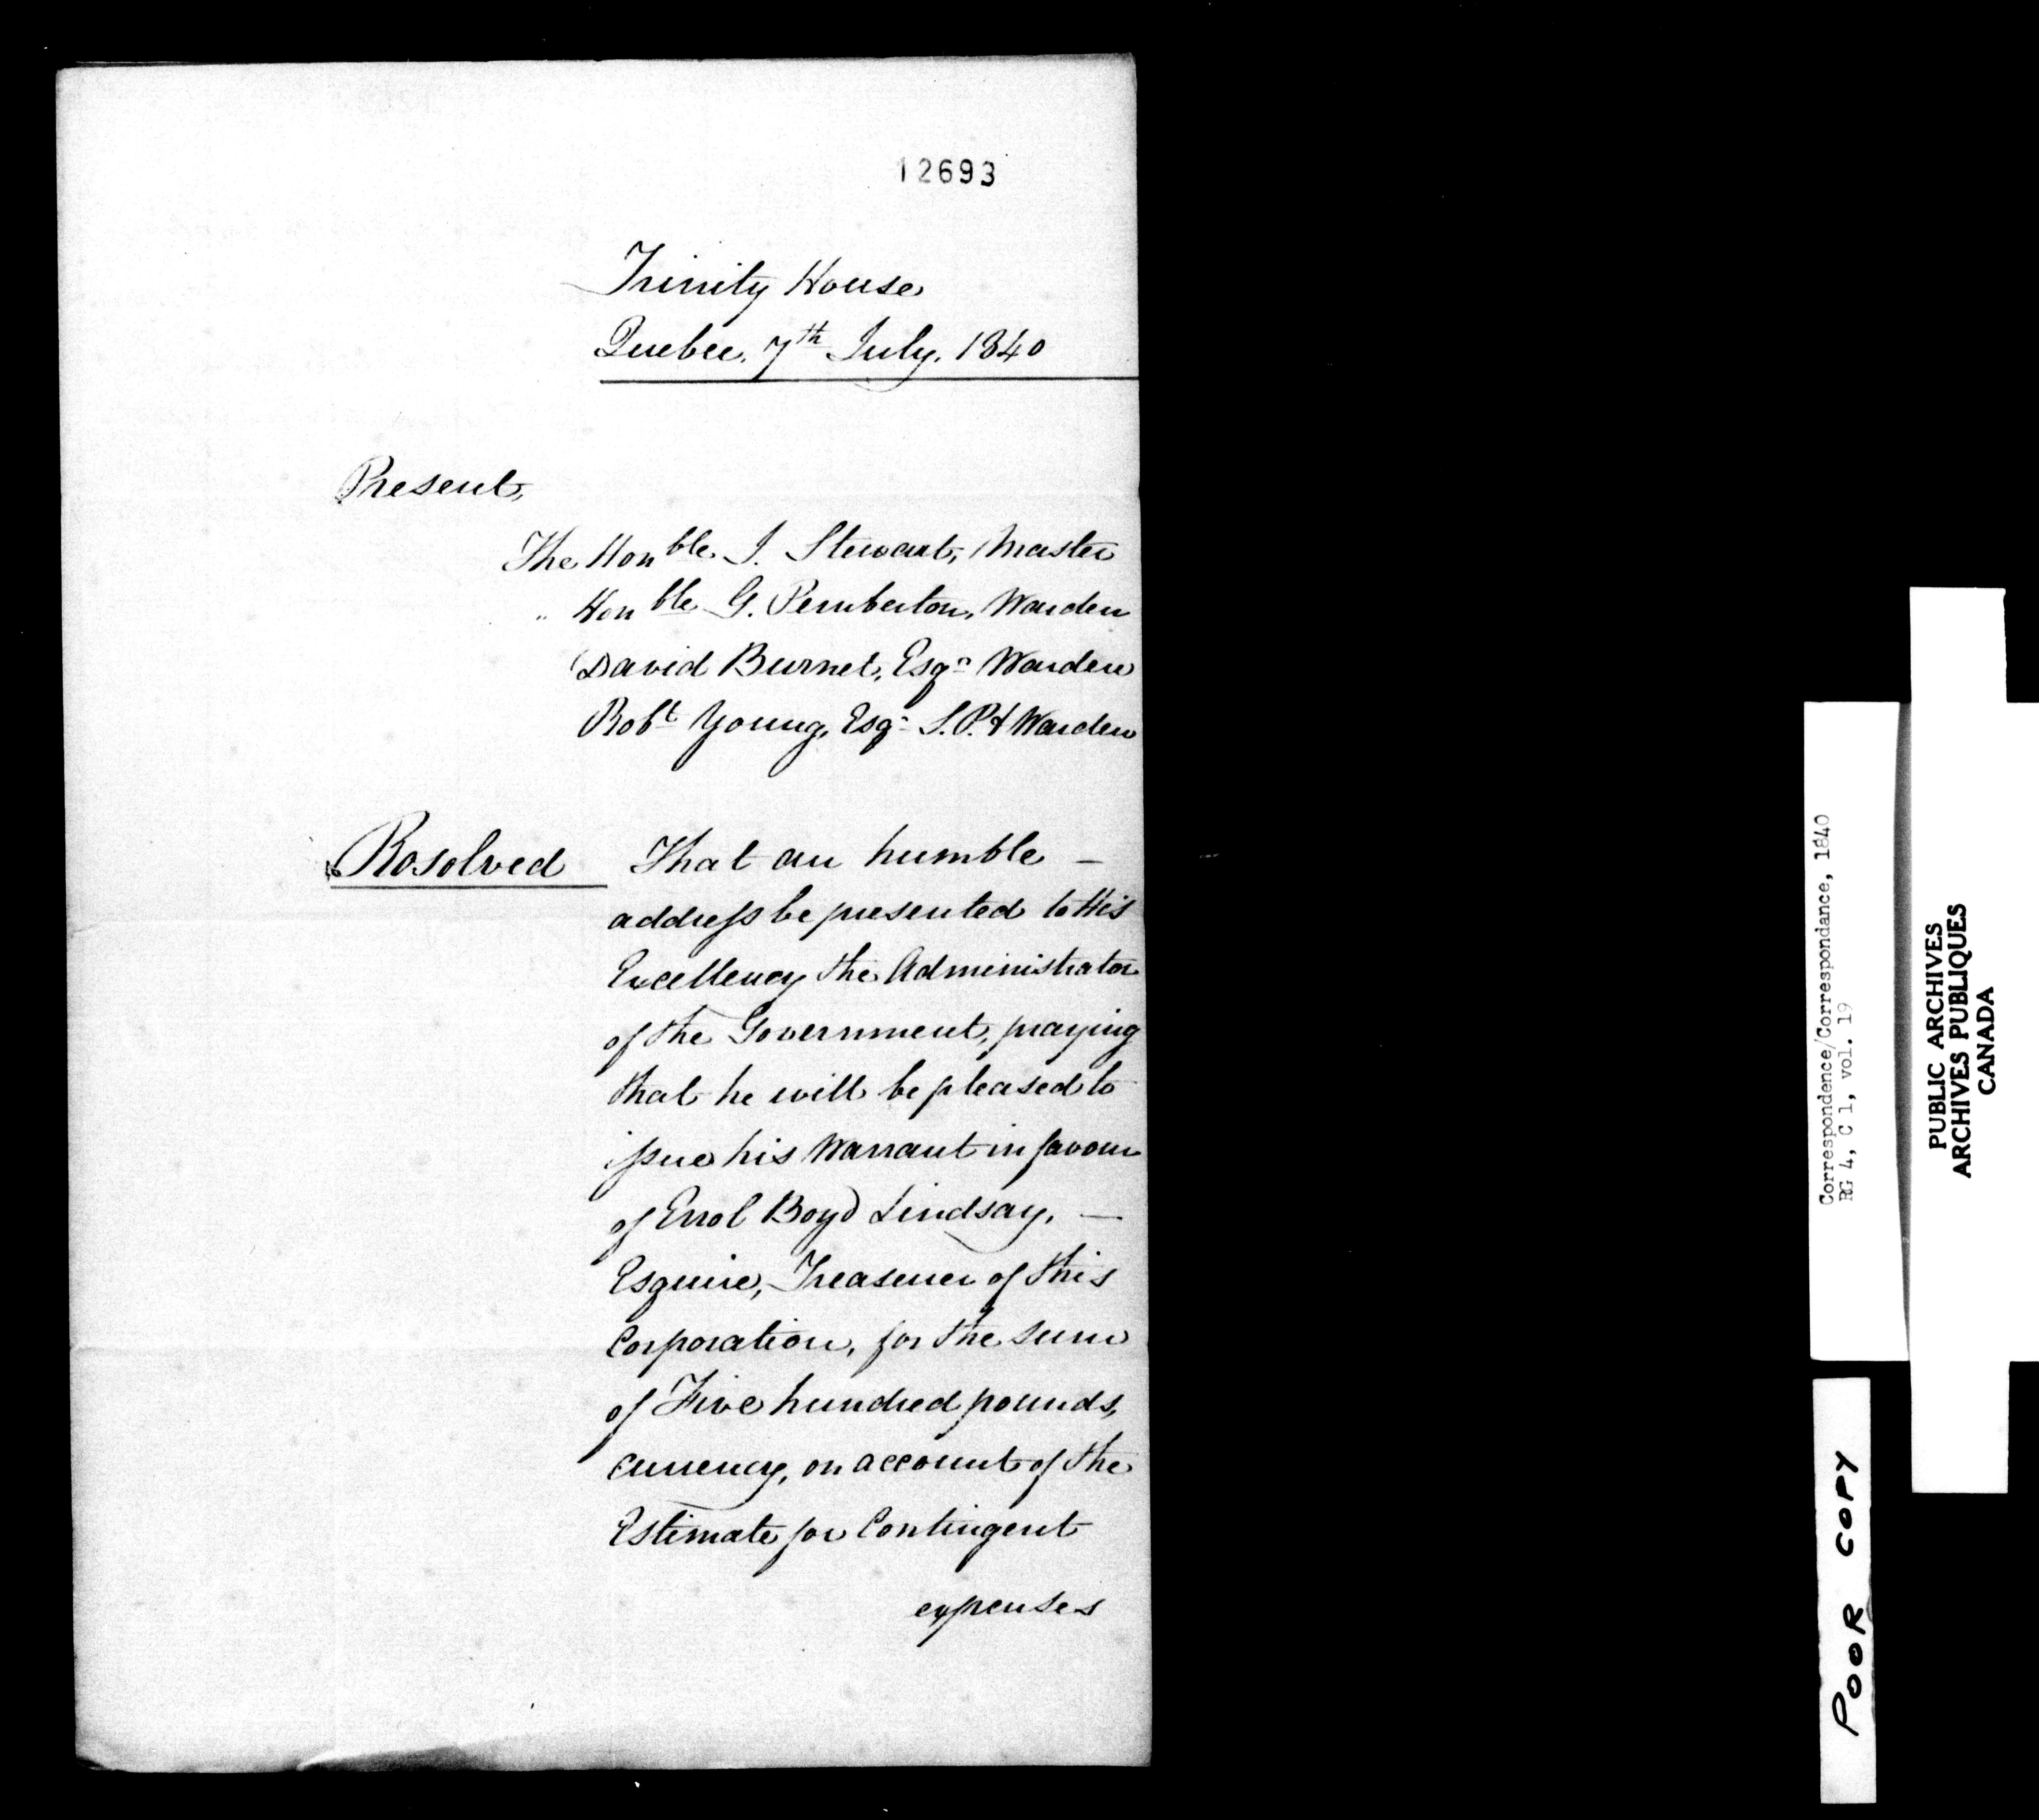 12693
Trinity House
Quebec, 7th July, 1840
Present,
The Honble J. Stewart, Master
" Honble G. Pemberton, Warden
David Burnet, Esqr Warden
Robt Young, Esqr S.P. & Warden
Resolved That an humble —
address be presented to His
Excellency the Administrator
of the Government, praying
that he will be pleased to
issue his Warrant in favour
of Errol Boyd Lindsay, —
Esquire, Treasurer of this
Corporation, for the sum
of Five hundred pounds,
currency, on account of the
Estimate for Contingent
expenses
Correspondence/Correspondance, 1840
RG 4, C 1, vol. 19
PUBLIC ARCHIVES
ARCHIVES PUBLIQUES
CANADA
POOR COPY